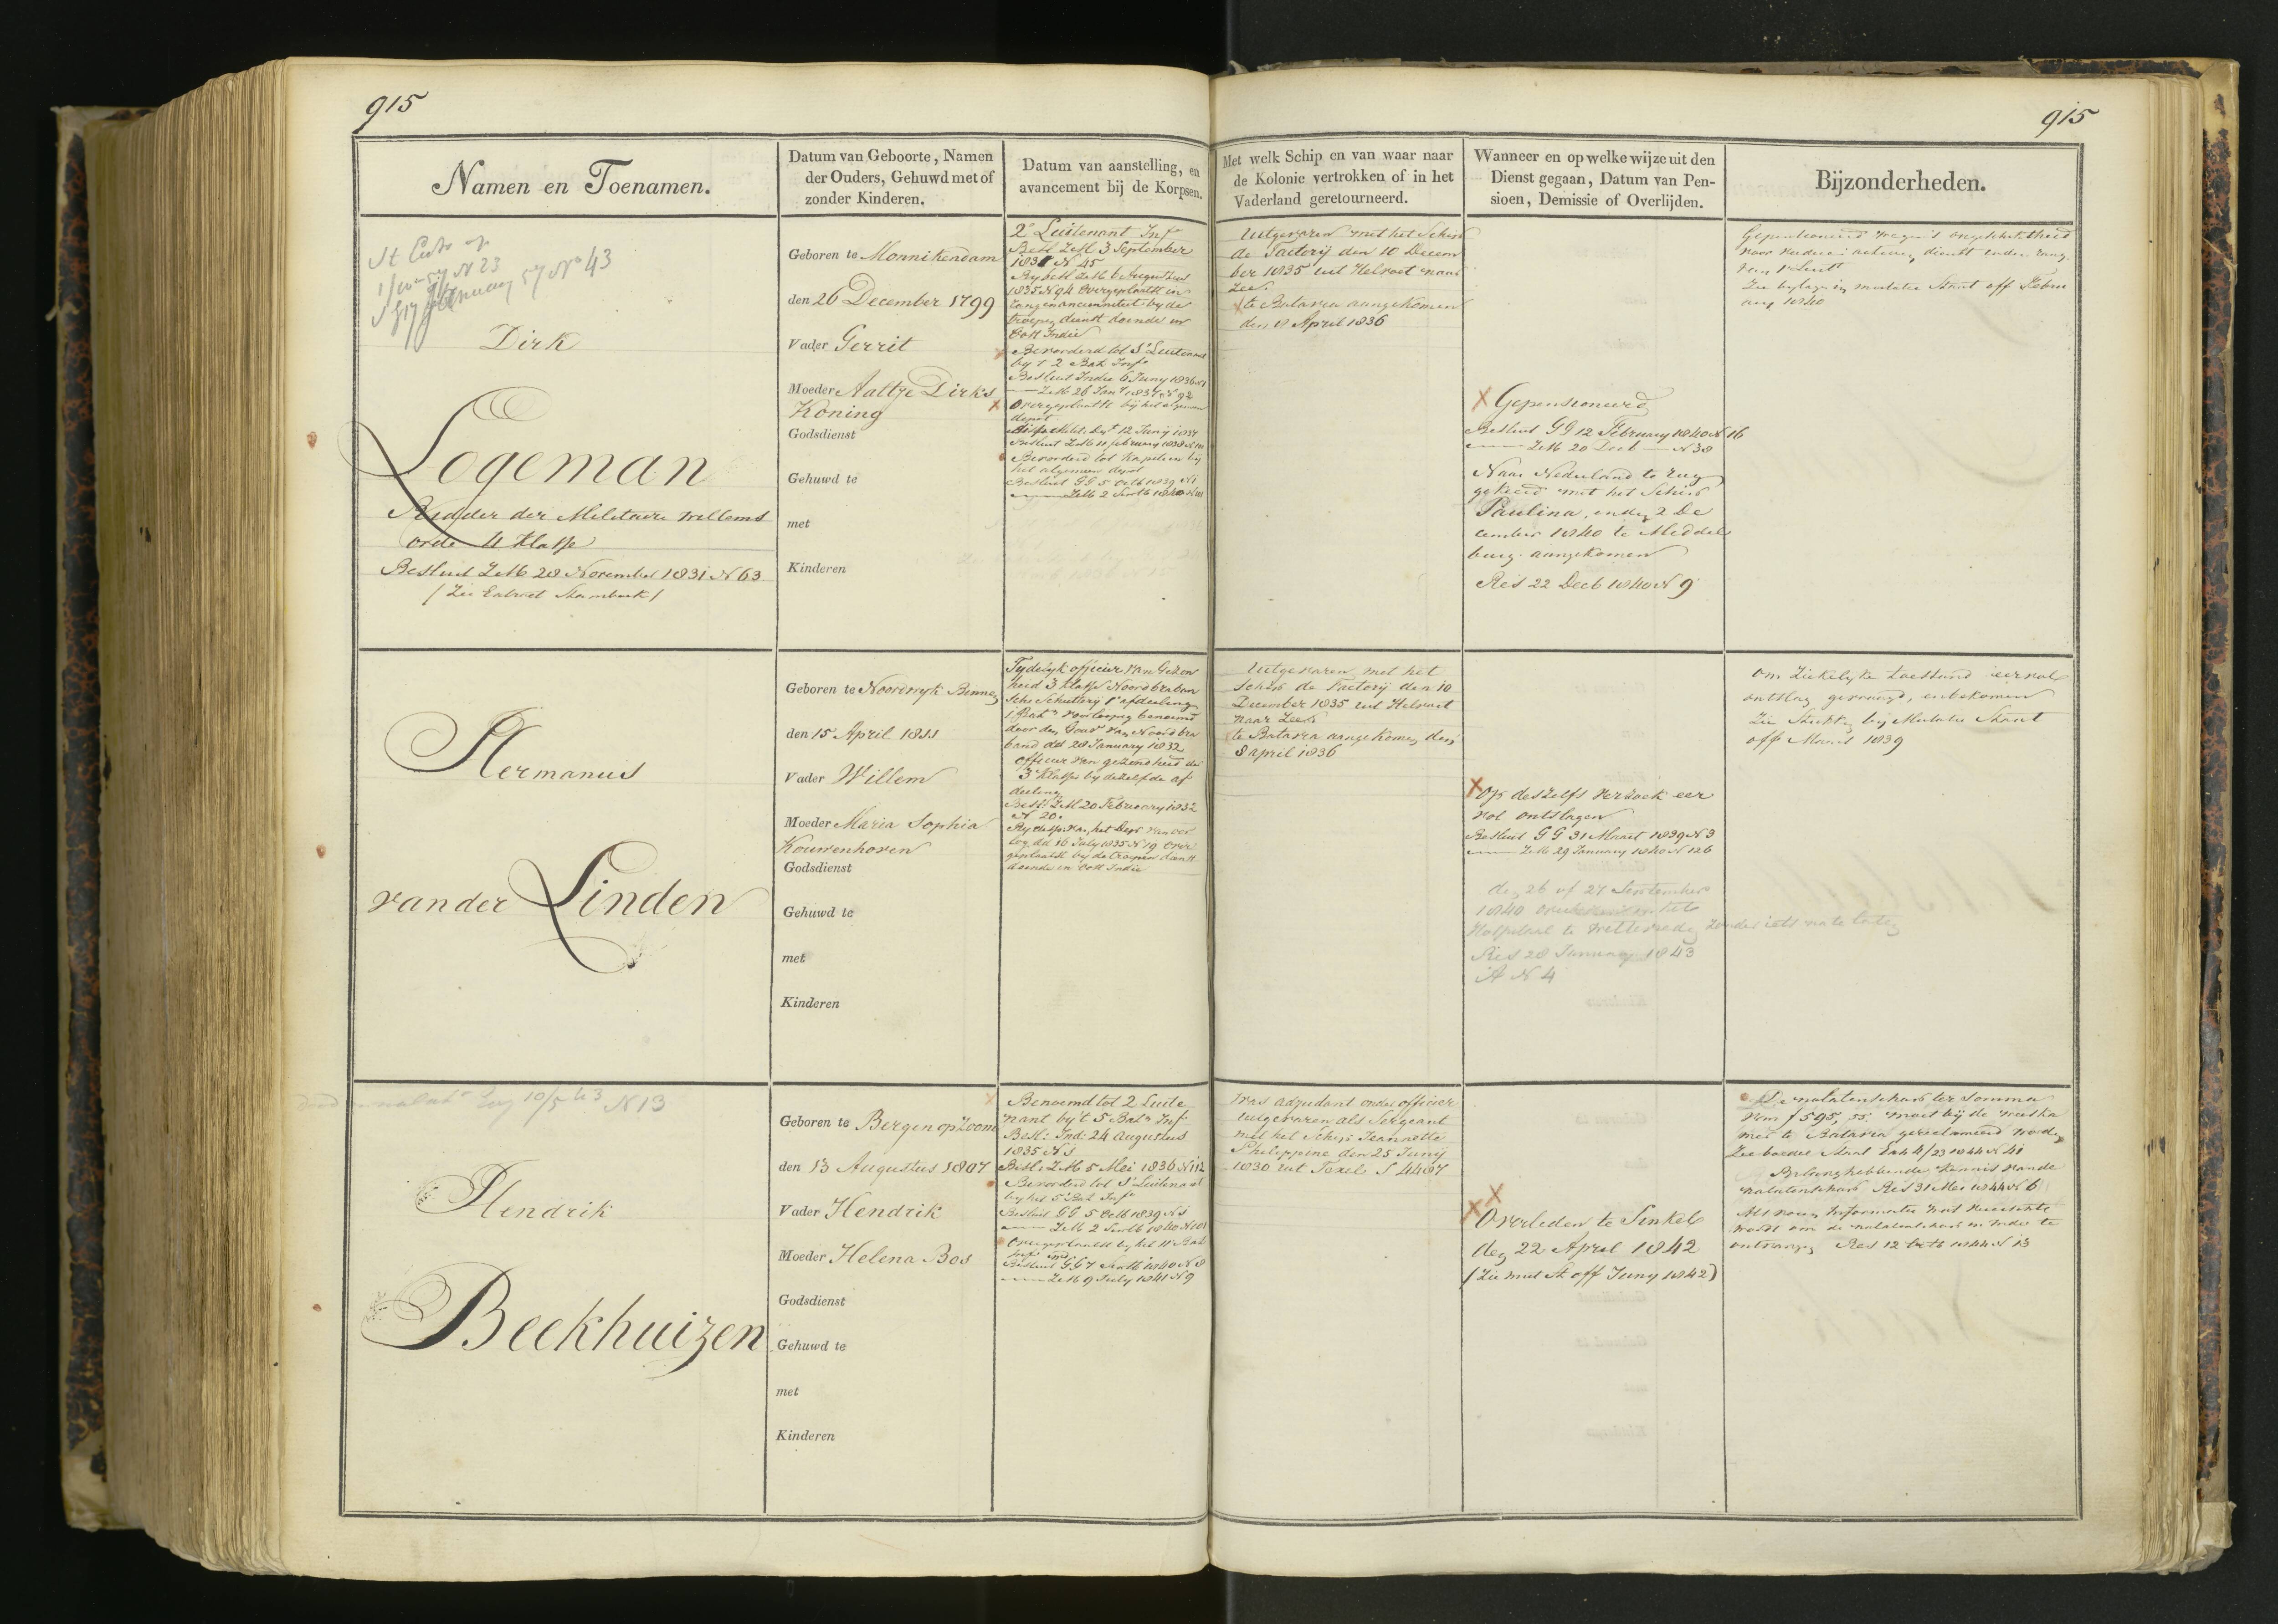 915
915
Namen en Toenamen.
Datum van Geboorte, Namen
der Ouders, Gehuwd met of
zonder Kinderen.
Datum van aanstelling, en
avancement bij de Korpsen.
Met welk Schip en van waar naar
de Kolonie vertrokken of in het
Vaderland geretourneerd.
Wanneer en op welke wijze uit den
Dienst gegaan, Datum van Pen-
sioen, Demissie of Overlijden.
Bijzonderheden.
N 23
January 57 No 43
Dirk
Logeman
Ridder der Militaire Willems
orde 4 Klasse
Besluit ZM 28 November 1831 N 63
(Zie Extract Stamboek)
Geboren te Monnikendam
den 26 December 1799
Vader Gerrit
Moeder Aaltje Dirks
Koning
Godsdienst
Gehuwd te
met
Kinderen
2e Luitenant Inf
Besl ZM 3 September
1831 N 45
By besl ZM 6 Augustus
1835 N 94 Overgeplaatst in
rang en ancienniteit by de
troepen dienst doende in
Oost Indie
Bevorderd tot 1e Luitenant
by t 2 Bat Inf
Besluit Indie 6 Juny 1836 N 1
ZM 26 Jany 1837 N 92
Overgeplaatst bij het algemeen
depot
12 Juny 1837
Besluit ZM 11 february 1838
Bevorderd tot Kapitein bij
het algemeen depot
Besluit GG 5 Octb 1839 N 1
ZM 2 Septb 1840 N 101
Uitgevaren met het Schip
de Factorij den 10 Decem
ber 1835 uit Helvoet naar
Zee.
te Batavia aangekomen
den 8 April 1836
X Gepensioneerd
Besluit GG 12 February 1840 N 16
ZM 20 Decb N 38
Naar Nederland te rug
gekeerd met het Schip
Paulina, en den 2 De
cember 1840 te Middel
burg aangekomen
Res 22 Decb 1840 N 9
Gepensioneerd wegens ongeschiktheid
voor verdere actieve dienst onder rang
van 1e Luitt
Zie bylage in mutatie Staat off Febru
ary 1840
Hermanus
van der Linden
Geboren te Noordwyk Binnen
den 15 April 1811
Vader Willem
Moeder Maria Sophia
Kouwenhoven
Godsdienst
Gehuwd te
met
Kinderen
Tydelyk officier van Gezon
heid 3 Klasse Noordbraban
sche Schuttery 1e afdeeling
1 Batn voorloopig benoemd
door den Gouvr van Noordbra
band dd 28 January 1832
officier van gezondheid der
3e Klasse by dezelfde af
deeling
Besl: ZM 20 February 1832
N 20.
By desp: van het Dept van oor
log dd 16 July 1835 N 19 over
geplaatst by de troepen dienst
doende in Oost Indie
Uitgevaren met het
Schip de Factorij den 10
December 1835 uit Helvoet
naar Zee
te Batavia aangekomen den
8 april 1836
X Op deszelfs verzoek eer
vol ontslagen
Besluit GG 31 Maart 1839 N 3
ZM 29 January 1840 N 126
den 26 of 27 September
1840 overleden in het
Hospitaal te Weltevreden zonder iets na te laten
Res 28 January 1843
A N 4
Om Ziekelyke toestand eervol
ontslag gevraagd, en bekomen
Zie Stukken bij Mutatie Staat
off Maart 1839
10/5 43 N 13
Hendrik
Beekhuizen
Geboren te Bergen op Zoom
den 13 Augustus 1807
Vader Hendrik
Moeder Helena Bos
Godsdienst
Gehuwd te
met
Kinderen
Benoemd tot 2 Luite
nant by 't 5 Batn Inf
Besl: Ind: 24 Augustus
1835 N 1
Besl: ZM 5 Mei 1836 N 112
Bevorderd tot 1e Luitenant
by het 5 Bat Inf
Besluit GG 5 Octb 1839 N 1
ZM 2 Septb 1840 N 101
Overgeplaatst by het 11 Bat
Inf
Besluit GG 7 Septb 1840 N 8
ZM 9 July 1841 N 9
Was adjudant onder officier
uitgevaren als Sergeant
met het Schip Jeannette
Philippine den 25 Junij
1830 uit Texel S 4487
X
X Overleden te Sinkel
den 22 April 1842
(Zie mut St off Juny 1842)
De nalatenschap ter somma
van f 595,55 moet bij de weeska
mer te Batavia gereclameerd worden
Zie boedel Staat Exh 4/23 1844 N 41
Belanghebbende kennis van de
nalatenschap Res 31 Mei 1844 N 6
om de nalatenschap in Indie te
ontvangen Res 12 Octb 1844 N 13